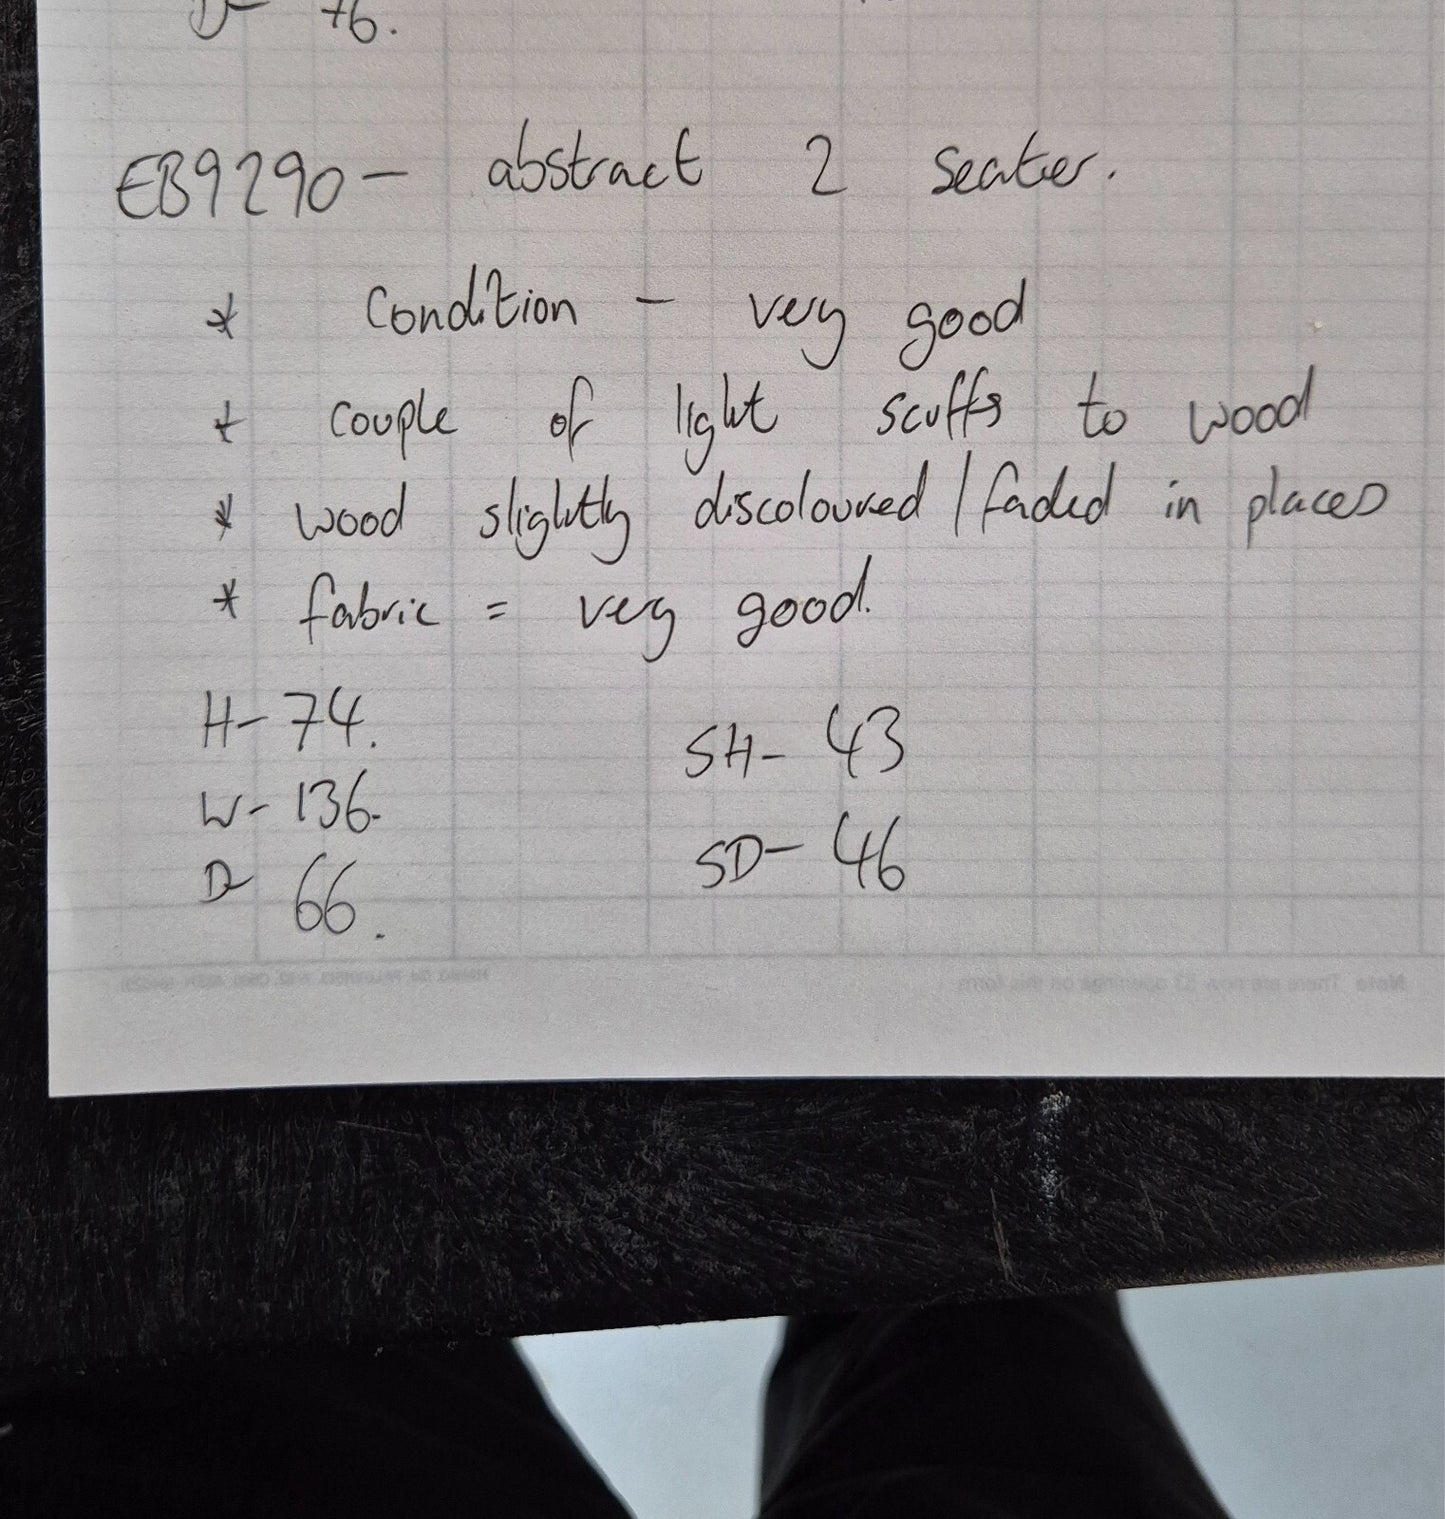 D- 76.
EB9290- abstract 2 seater.
* Condition - very good
* couple of light scuffs to wood
* wood slightly discoloured / faded in places
* fabric = very good.
H- 74. SH- 43
W- 136. SD- 46
D- 66.
Note There are now 53 openings on this form